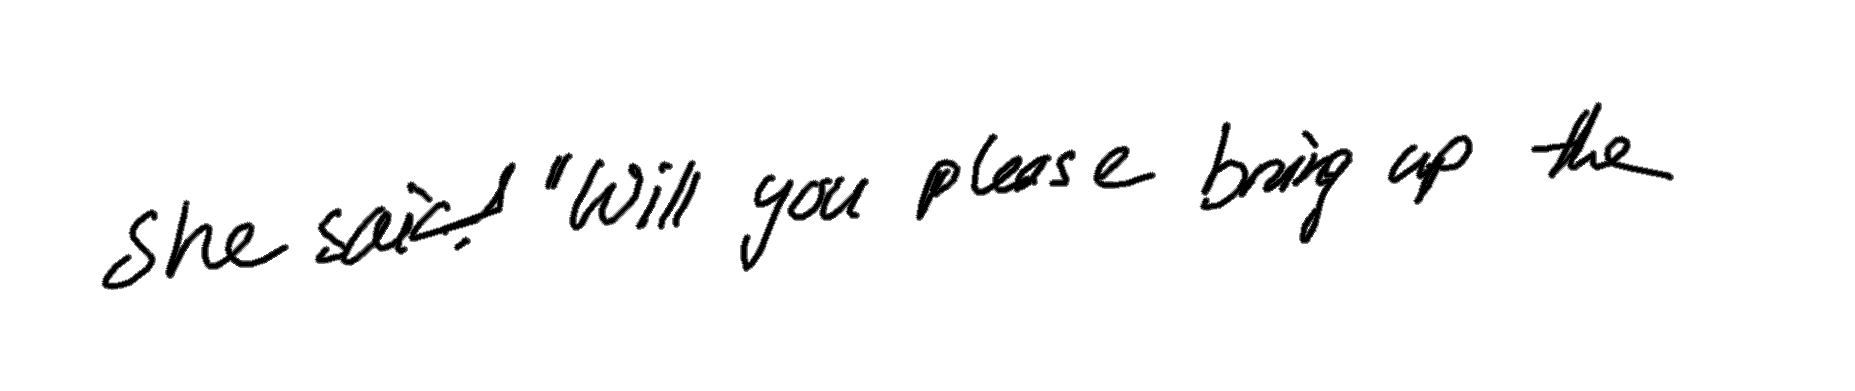 She said, "Will you please bring up the